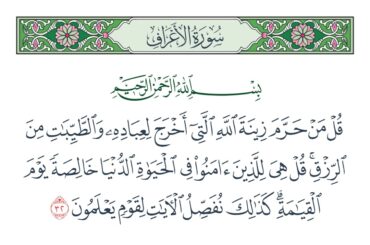 سُورَةُ الأَعْرَافِ
بِسْمِ ٱللَّهِ ٱلرَّحْمَٰنِ ٱلرَّحِيمِ
قُلْ مَنْ حَرَّمَ زِينَةَ ٱللَّهِ ٱلَّتِىٓ أَخْرَجَ لِعِبَادِهِۦ وَٱلطَّيِّبَٰتِ مِنَ
ٱلرِّزْقِۚ قُلْ هِىَ لِلَّذِينَ ءَامَنُوا۟ فِى ٱلْحَيَوٰةِ ٱلدُّنْيَا خَالِصَةً يَوْمَ
ٱلْقِيَٰمَةِۗ كَذَٰلِكَ نُفَصِّلُ ٱلْءَايَٰتِ لِقَوْمٍ يَعْلَمُونَ ٣٢